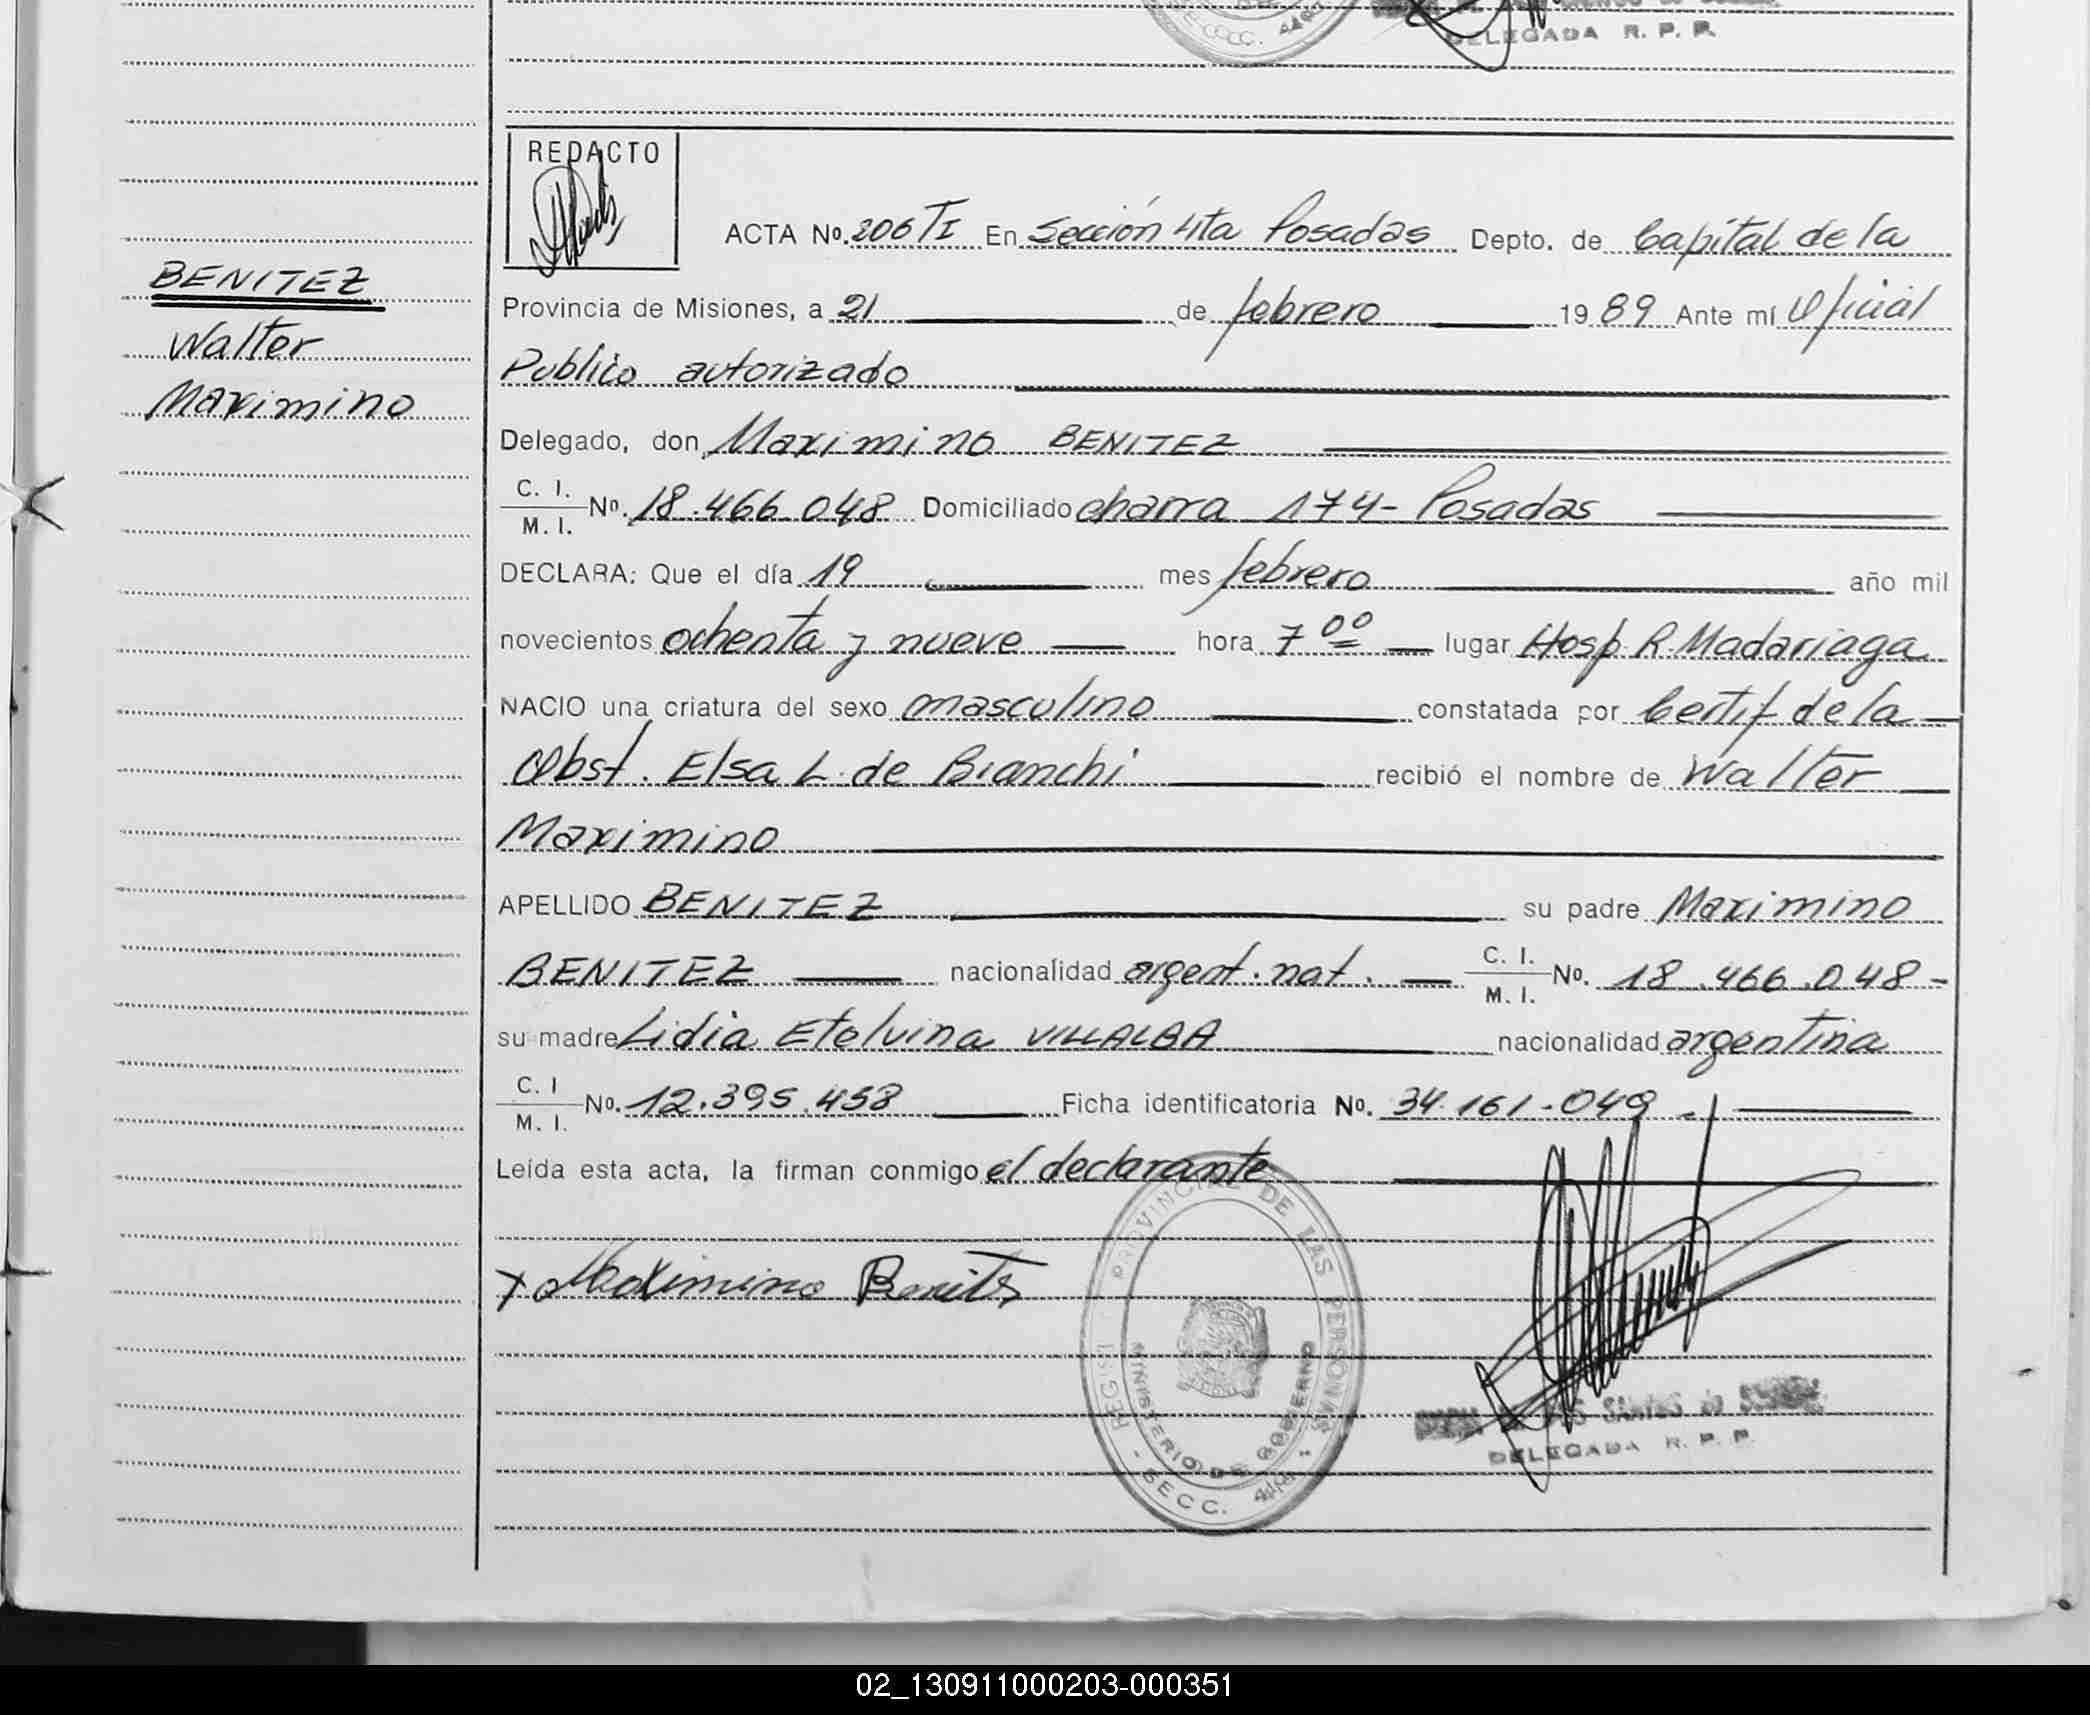 DELEGADA R. P. P.
REDACTO
ACTA No. 206 TI En Sección 4ta Posadas Depto. de Capital de la
BENITEZ
Walter
Maximino
Provincia de Misiones, a 21 de febrero 1989 Ante mí Oficial
Publico autorizado
Delegado, don Maximino BENITEZ
C. I.
M. I. No. 18.466.048 Domiciliado charra 174- Posadas
DECLARA: Que el día 19 mes febrero año mil
novecientos ochenta y nueve hora 7 00 lugar Hosp. R. Madariaga
NACIO una criatura del sexo masculino constatada por Certif de la
Obst. Elsa L. de Bianchi recibió el nombre de Walter
Maximino
APELLIDO BENITEZ su padre Maximino
BENITEZ nacionalidad argent. nat. C. I.
M. I. No. 18.466.048-
su madre Lidia Etelvina VILLALBA nacionalidad argentina
C. I
M. I. No. 12.395.458 Ficha identificatoria No. 34.161.049
Leída esta acta, la firman conmigo el declarante
x Maximino Benitez
REGIST PROVINCIAL DE LAS PERSONAS
MINISTERIO DE GOBIERNO
- SECC. 4ta -
DELEGADA R. P. P.
02_130911000203-000351